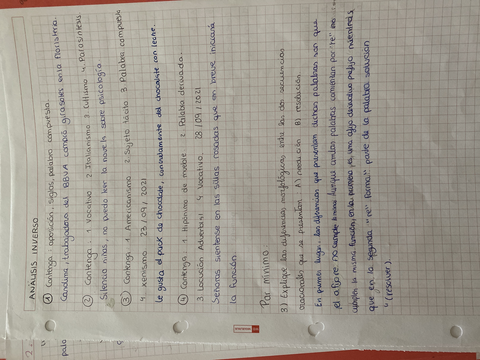 ANALISIS INVERSO
① Contenga aposición, siglas, palabra compuesta.
Candami, trabajadora del BBVA compró girasoles en la floristería.
② Contenga 1 Vocativo 2 Italianismo 3 Cultismo 4 Parasíntesis
Silencio niñas, no puedo leer la novela sobre psicología
③ Contenga 1 Americanismo 2 Sujeto tácito 3 Palabra compuesta
4 xenismo 27/09/2021
Le gusta el pack de chocolate, concretamente del chocolate con leche.
④ Contenga 1 Hipónimo de mueble 2 Palabra derivada
3 Locución Adverbial 4 Vocativo 28/09/2021
Señoras siéntense en las sillas rosadas que en breve iniciará
la función.
Par mínimo
3) Explique las diferencias morfológicas entre las dos secuencias
que se presentan A) B) resolución
En primer lugar las diferencias que presentan dichas palabras son que
el afijo re no cumple Aunque ambas palabras comienzan por "re" no
cumplen la misma función, en la primera, es un afijo derivativo prefijo mientras
que en la segunda "re" forma parte de la palabra solución
"(resolver)
palo